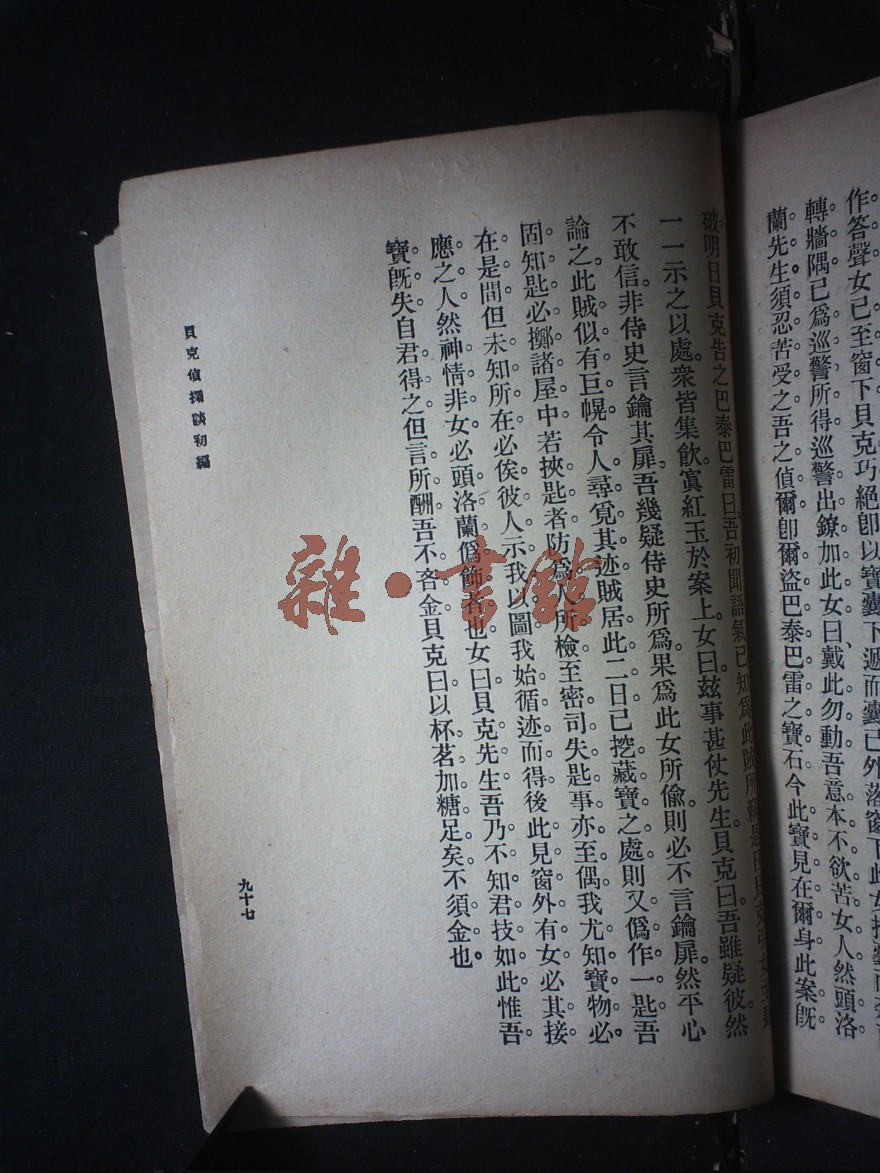 作答聲女已至窗下貝克巧絕卽以寶囊下遞而囊已外落窗下此女
轉牆隅已爲巡警所得巡警出鐐加此女曰戴此勿動吾意本不欲苦女人然頭洛
蘭先生須忍苦受之吾之偵爾卽爾盜巴泰巴雷之寶石今此寶見在爾身此案旣
破明日貝克告之巴泰巴雷曰吾初聞語氣已知爲此賊所
一一示之以處衆皆集飮寘紅玉於案上女曰玆事甚仗先生貝克曰吾雖疑彼然
不敢信非侍史言鑰其扉吾幾疑侍史所爲果爲此女所偸則必不言鑰扉然平心
論之此賊似有巨幌令人尋覓其迹賊居此二日已挖藏寶之處則又僞作一匙吾
固知匙必擲諸屋中若挾匙者防爲人所檢至密司失匙事亦至偶我尤知寶物必
在是間但未知所在必俟彼人示我以圖我始循迹而得後此見窗外有女必其接
應之人然神情非女必頭洛蘭僞飾者也女曰貝克先生吾乃不知君技如此惟吾
寶旣失自君得之但言所酬吾不吝金貝克曰以杯茗加糖足矣不須金也
貝克偵探談初編
九十七
雜·書館